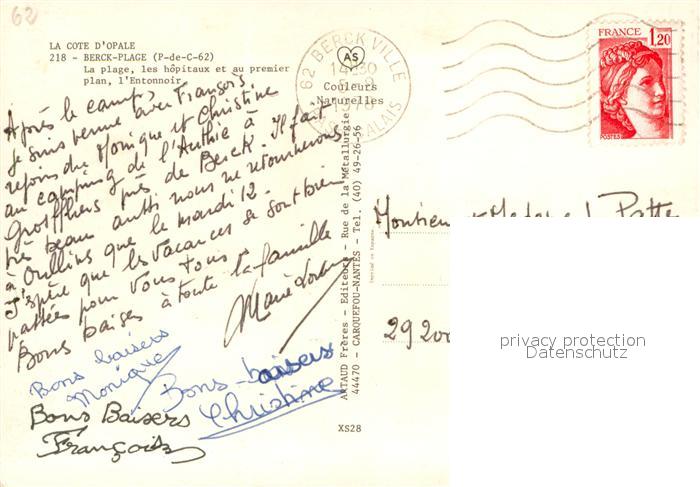 62
LA COTE D'OPALE
218 - BERCK-PLAGE (P-de-C-62)
La plage, les hôpitaux et au premier
plan, l'Entonnoir
Après le camp,
je suis venue avec François
rejoindre Monique et Christine
au camping de l'Authie à
Groffliers près de Berck. Il fait
très beau aussi nous ne retournerons
à Oullins que le mardi 12.
J'espère que les vacances se sont bien
passées pour vous tous.
Bons baisers à toute la famille
Marie
Bons baisers
Monique
Bons baisers
Christine
Bons Baisers
François
AS
Couleurs
Naturelles
ARTAUD Frères - Editeurs - Rue de la Métallurgie
44470 - CARQUEFOU-NANTES - Tel. (40) 49-26-56
XS28
62 BERCK VILLE
CALAIS
FRANCE
1,20
POSTES
Monsieur et Madame
29200
privacy protection
Datenschutz